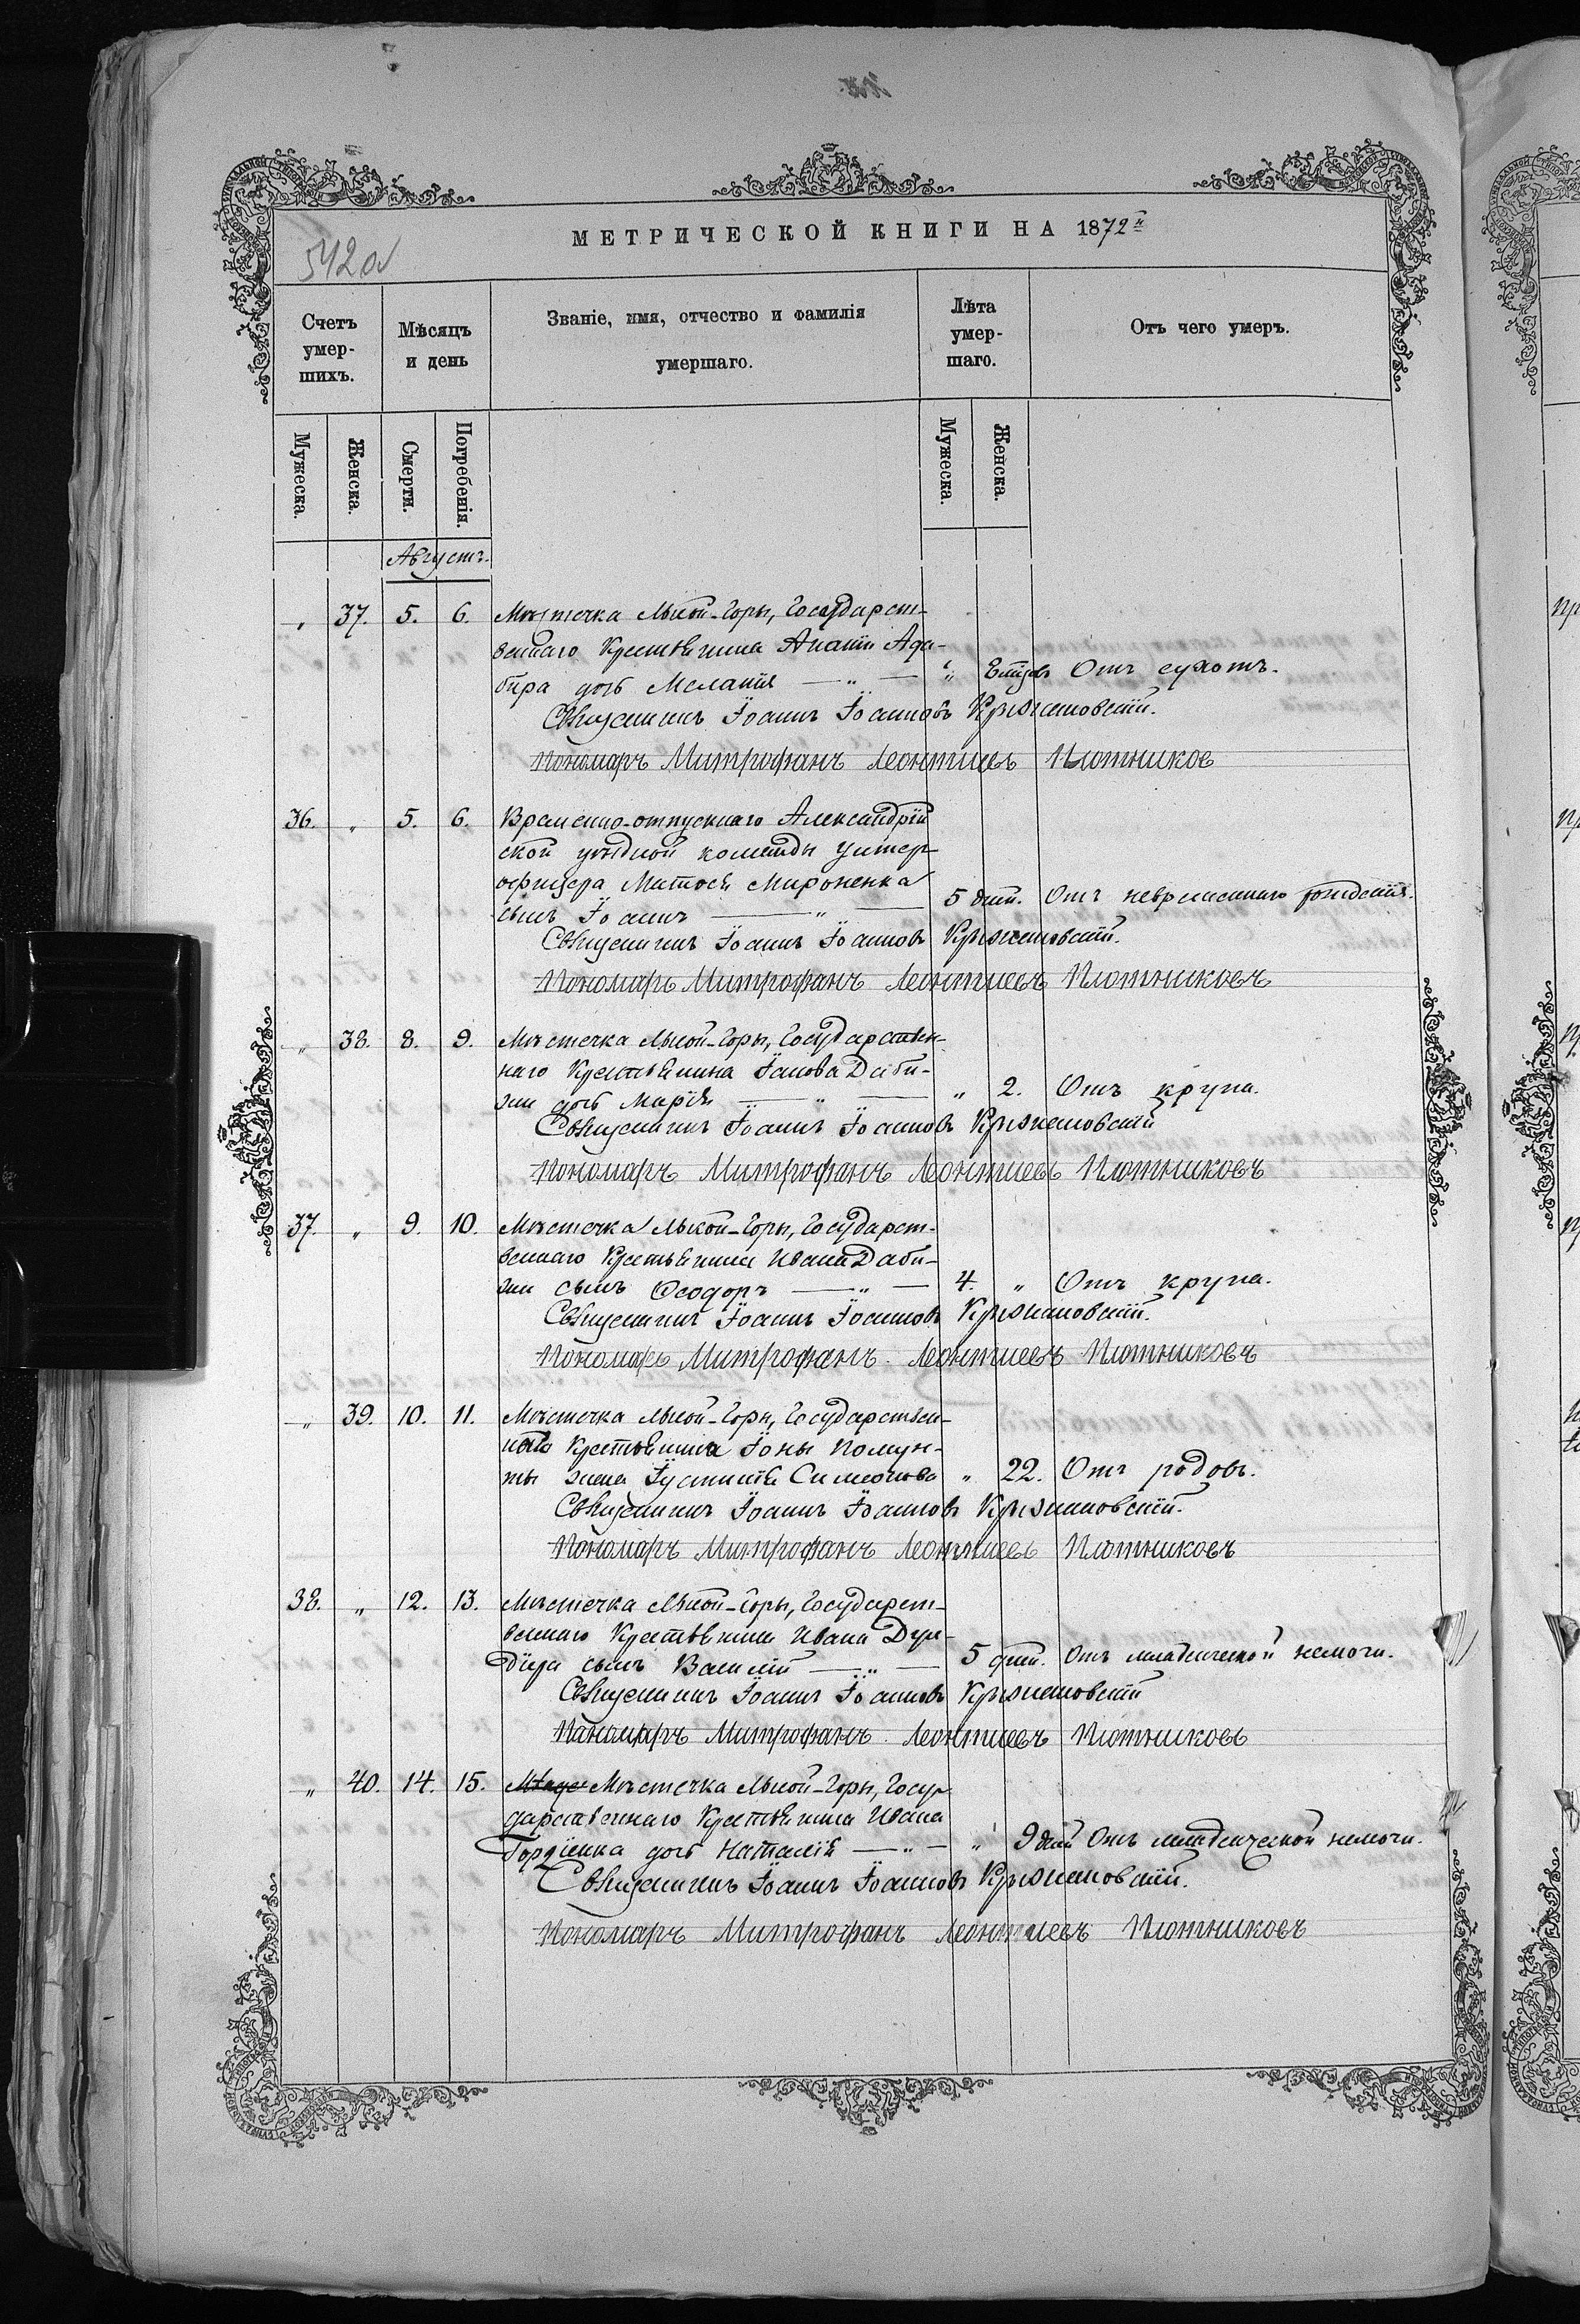 542 об
МЕТРИЧЕСКОЙ КНИГИ НА 1872й
Счетъ умер-шихъ.
Мѣсяцъ и день
Званіе, имя, отчество и фамилія умершаго.
Лѣта умер-шаго.
Отъ чего умеръ.
Мужеска. Женска. Смерти. Погребенія. Мужеска. Женска.
Августъ.
„ 37. 5. 6. Мѣстечка Лысой-Горы, Государст-
веннаго Крестьянина Ада-
дочь Меланія — „ — „ Отъ сухотъ.
Священникъ Іоаннъ Іоанновъ Крыжановскій.
Пономарь Митрофанъ Леонтіевъ Плотниковъ
36. „ 5. 6. Временно-отпускнаго Александрій
ской уѣздной команды Унтер
офицера Матося Мироненка
сынъ Іоаннъ — „ — 5 дней. Отъ невременнаго рожденія.
Священникъ Іоаннъ Іоанновъ Крыжановскій.
Пономарь Митрофанъ Леонтіевъ Плотниковъ
„ 38. 8. 9. Мѣстечка Лысой-Горы, Государствен-
наго Крестьянина Іакова Даби-
жи дочь Марія — „ — „ 2. Отъ крупа.
Священникъ Іоаннъ Іоанновъ Крыжановскій
Пономарь Митрофанъ Леонтіевъ Плотниковъ
37. „ 9. 10. Мѣстечка Лысой-Горы, Государст-
веннаго Крестьянина Ивана Даби-
жи сынъ Ѳеодоръ — „ — 4. „ Отъ крупа.
Священникъ Іоаннъ Іоанновъ Крыжановскій.
Пономарь Митрофанъ Леонтіевъ Плотниковъ
„ 39. 10. 11. Мѣстечка Лысой-Горы, Государствен-
наго Крестьянина Іоны
жена Іустинія Симеонова „ 22. Отъ родовъ.
Священникъ Іоаннъ Іоанновъ Крыжановскій.
Пономарь Митрофанъ Леонтіевъ Плотниковъ
38. „ 12. 13. Мѣстечка Лысой-Горы, Государст-
веннаго Крестьянина Ивана
сынъ Василій — „ — 5 дней. Отъ младенческой немочи.
Священникъ Іоаннъ Іоанновъ Крыжановскій
Пономарь Митрофанъ Леонтіевъ Плотниковъ
„ 40. 14. 15. Мѣстечка Лысой-Горы, Госу-
дарственнаго Крестьянина Ивана
Гордіенка дочь Наталія — „ — „ 9 дней Отъ младенческой немочи.
Священникъ Іоаннъ Іоанновъ Крыжановскій.
Пономарь Митрофанъ Леонтіевъ Плотниковъ